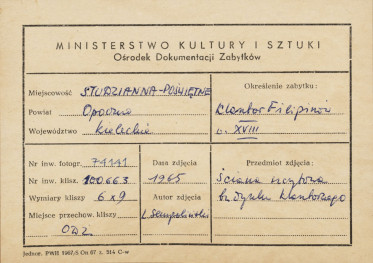 MINISTERSTWO KULTURY I SZTUKI
Ośrodek Dokumentacji Zabytków
Miejscowość STUDZIANNA-POŚWIĘTNE
Powiat Opoczno
Województwo kieleckie
Określenie zabytku:
Klasztor Filipinów
w. XVIII
Nr inw. fotogr. 74141
Nr inw. klisz. 100663
Wymiary kliszy 6x9
Miejsce przechow. kliszy
ODZ.
Data zdjęcia
1965
Autor zdjęcia
Przedmiot zdjęcia:
Ściana szczytowa
budynku klasztornego
Jednor. PWH 1967/S On 67 z. 314 C-w